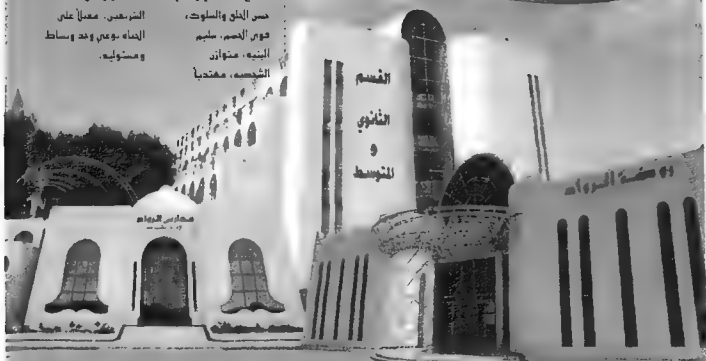 حسن الخلق والسلوك،
قوي الجسم، سليم
البنية، متوازن
الشخصية، مقتدياً
الشريفين، مقبلاً على
الحياة بوعي وجد ونشاط
ومسئولية.
القسم
الثانوي
و
المتوسط
مدارس الرواد
روضة الرواد